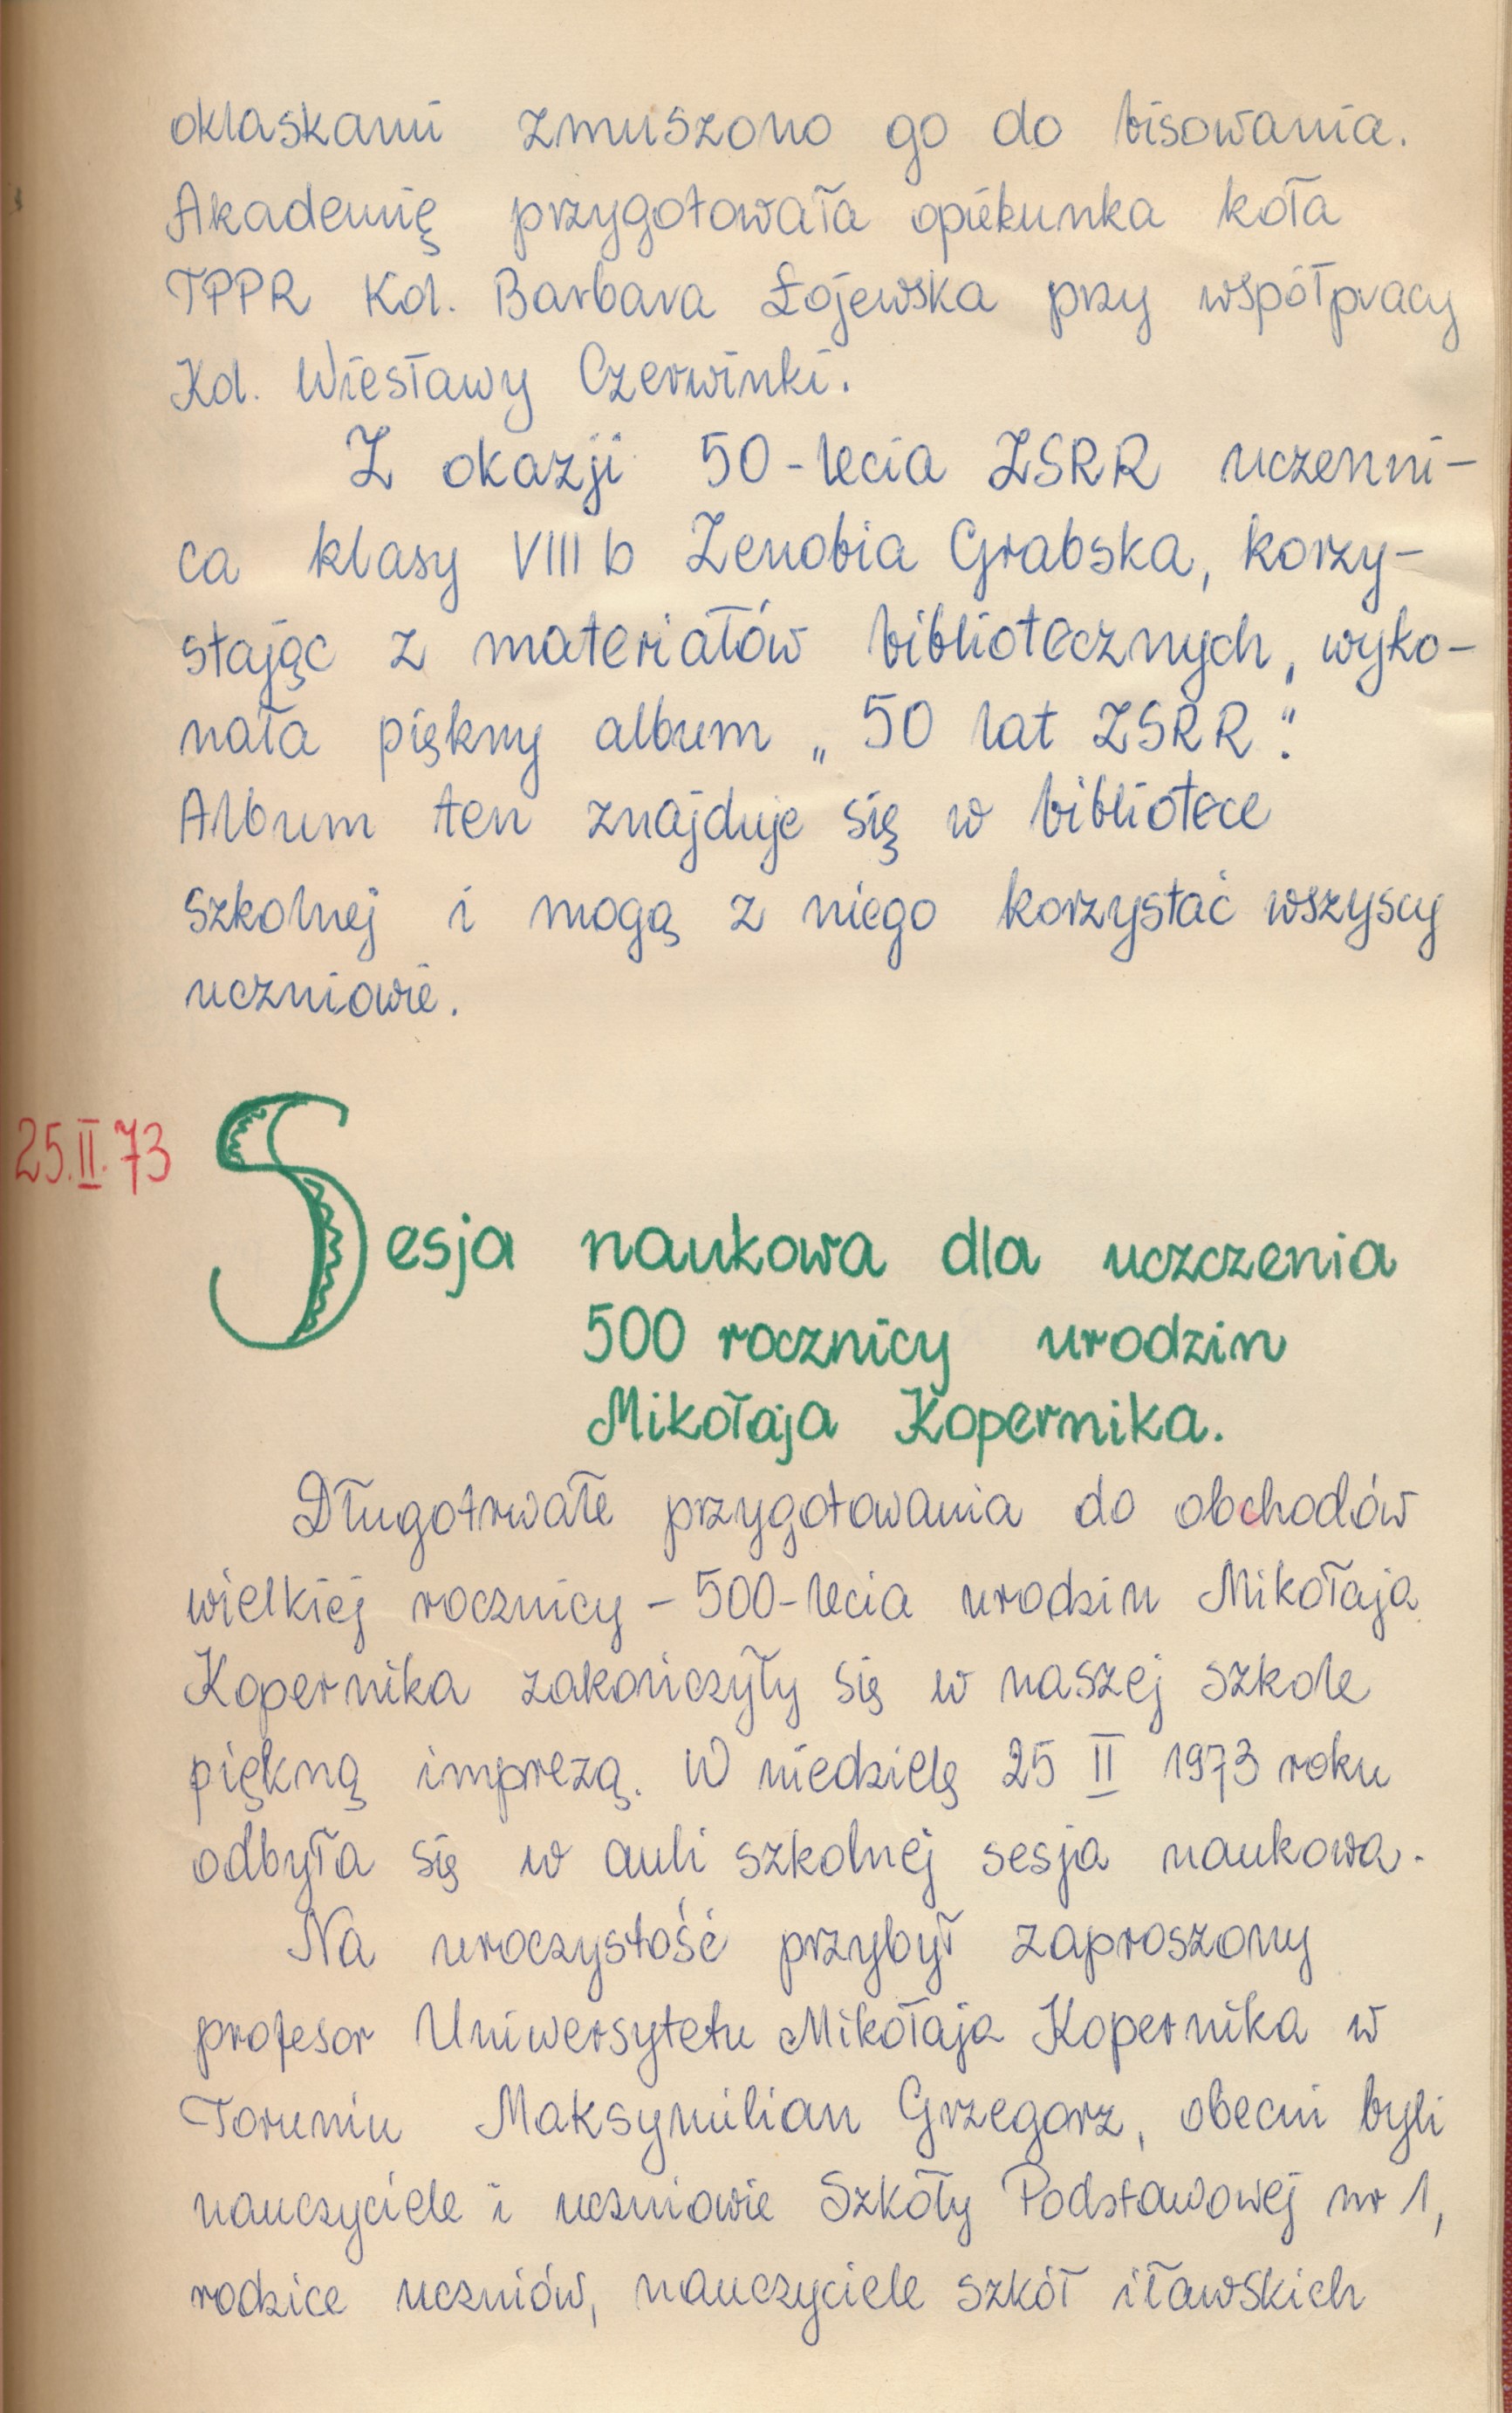 oklaskami zmuszono go do bisowania.
Akademię przygotowała opiekunka koła
TPPR Kol. Barbara Łojewska przy współpracy
Kol. Wiesławy Czerwinki.
Z okazji 50-lecia ZSRR uczenni-
ca klasy VIII b Zenobia Grabska, korzy-
stając z materiałów bibliotecznych, wyko-
nała piękny album „50 lat ZSRR".
Album ten znajduje się w bibliotece
szkolnej i mogą z niego korzystać wszyscy
uczniowie.
25.II.73
Sesja naukowa dla uczczenia
500 rocznicy urodzin
Mikołaja Kopernika.
Długotrwałe przygotowania do obchodów
wielkiej rocznicy - 500-lecia urodzin Mikołaja
Kopernika zakończyły się w naszej szkole
piękną imprezą. W niedzielę 25 II 1973 roku
odbyła się w auli szkolnej sesja naukowa.
Na uroczystość przybył zaproszony
profesor Uniwersytetu Mikołaja Kopernika w
Toruniu Maksymilian Grzegorz, obecni byli
nauczyciele i uczniowie Szkoły Podstawowej nr 1,
rodzice uczniów, nauczyciele szkół iławskich